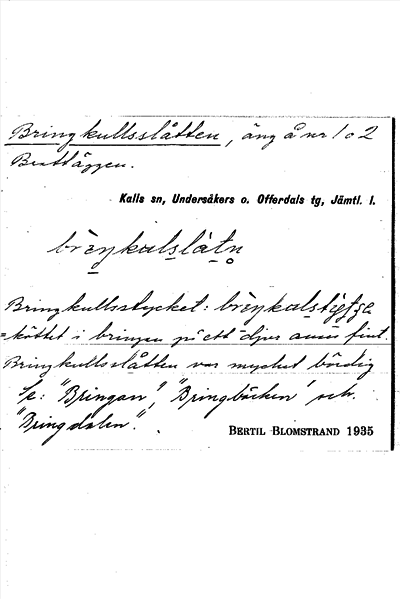 Bringkullsslåtten, äng å nr 1 o 2
Brattäggen.
Kalls sn, Undersåkers o. Offerdals tg, Jämtl. l.
brìŋkulslåtn̥
Bringkullsstycket:
= köttet i bringen på ett djur anses fint.
Bringkullsslåtten var mycket bördig
Se: "Bringan", "Bringbäcken" och
"Bringdalen".
BERTIL BLOMSTRAND 1935